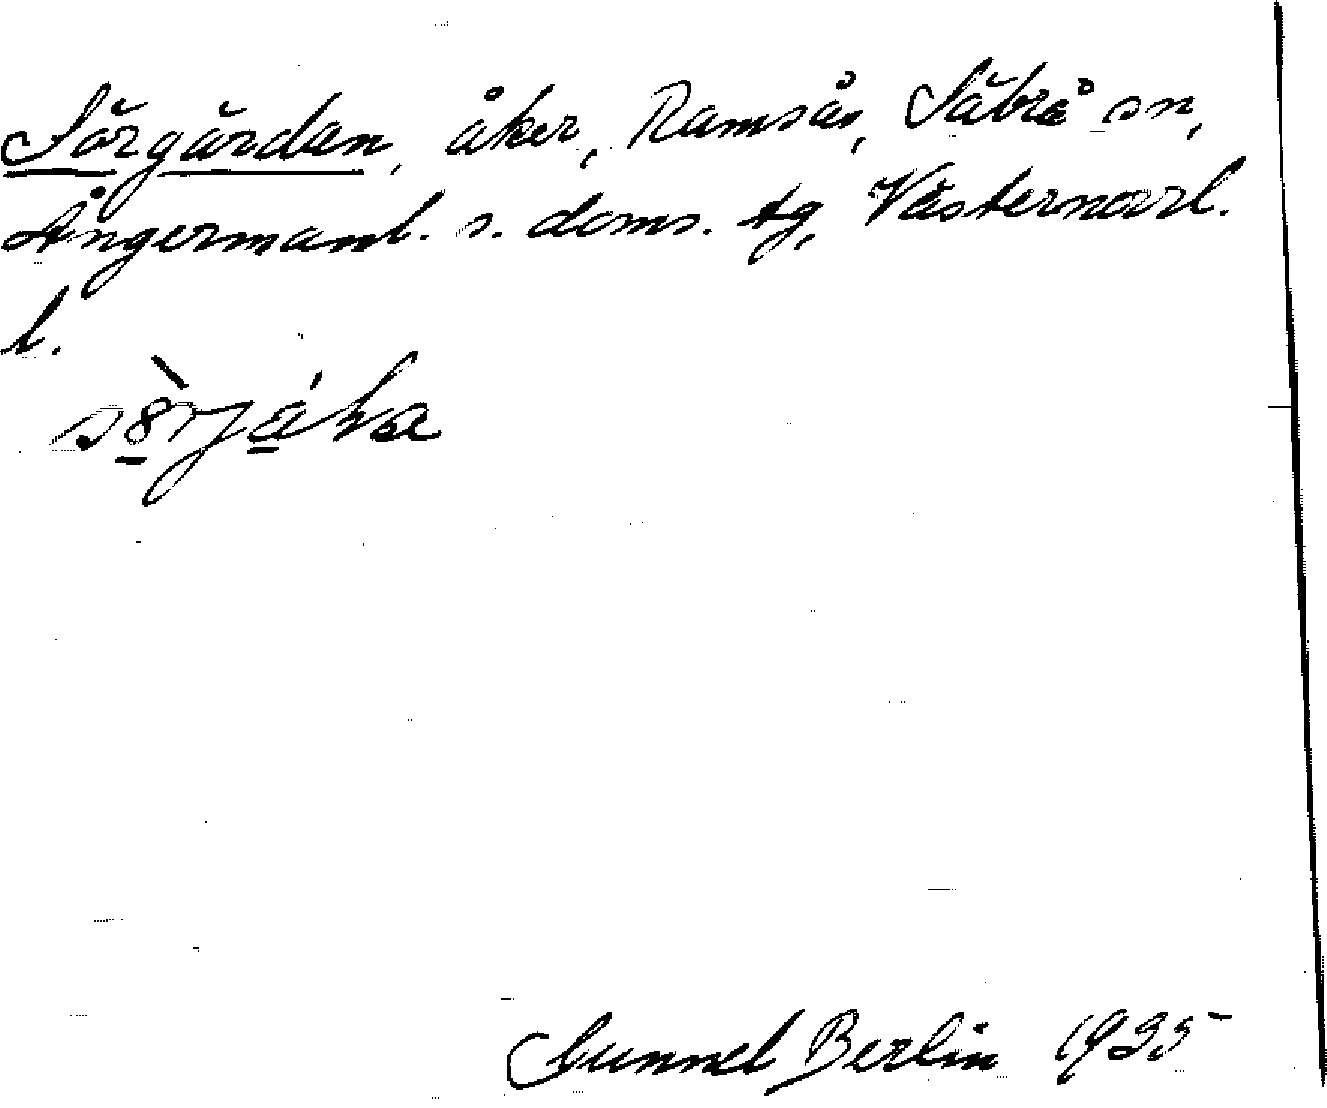 Sörgården, åker, Ramsås, Säbrå sn,
Ångermanl. s. doms. tg, Västernorrl.
l.
Gunnel Berlin 1935